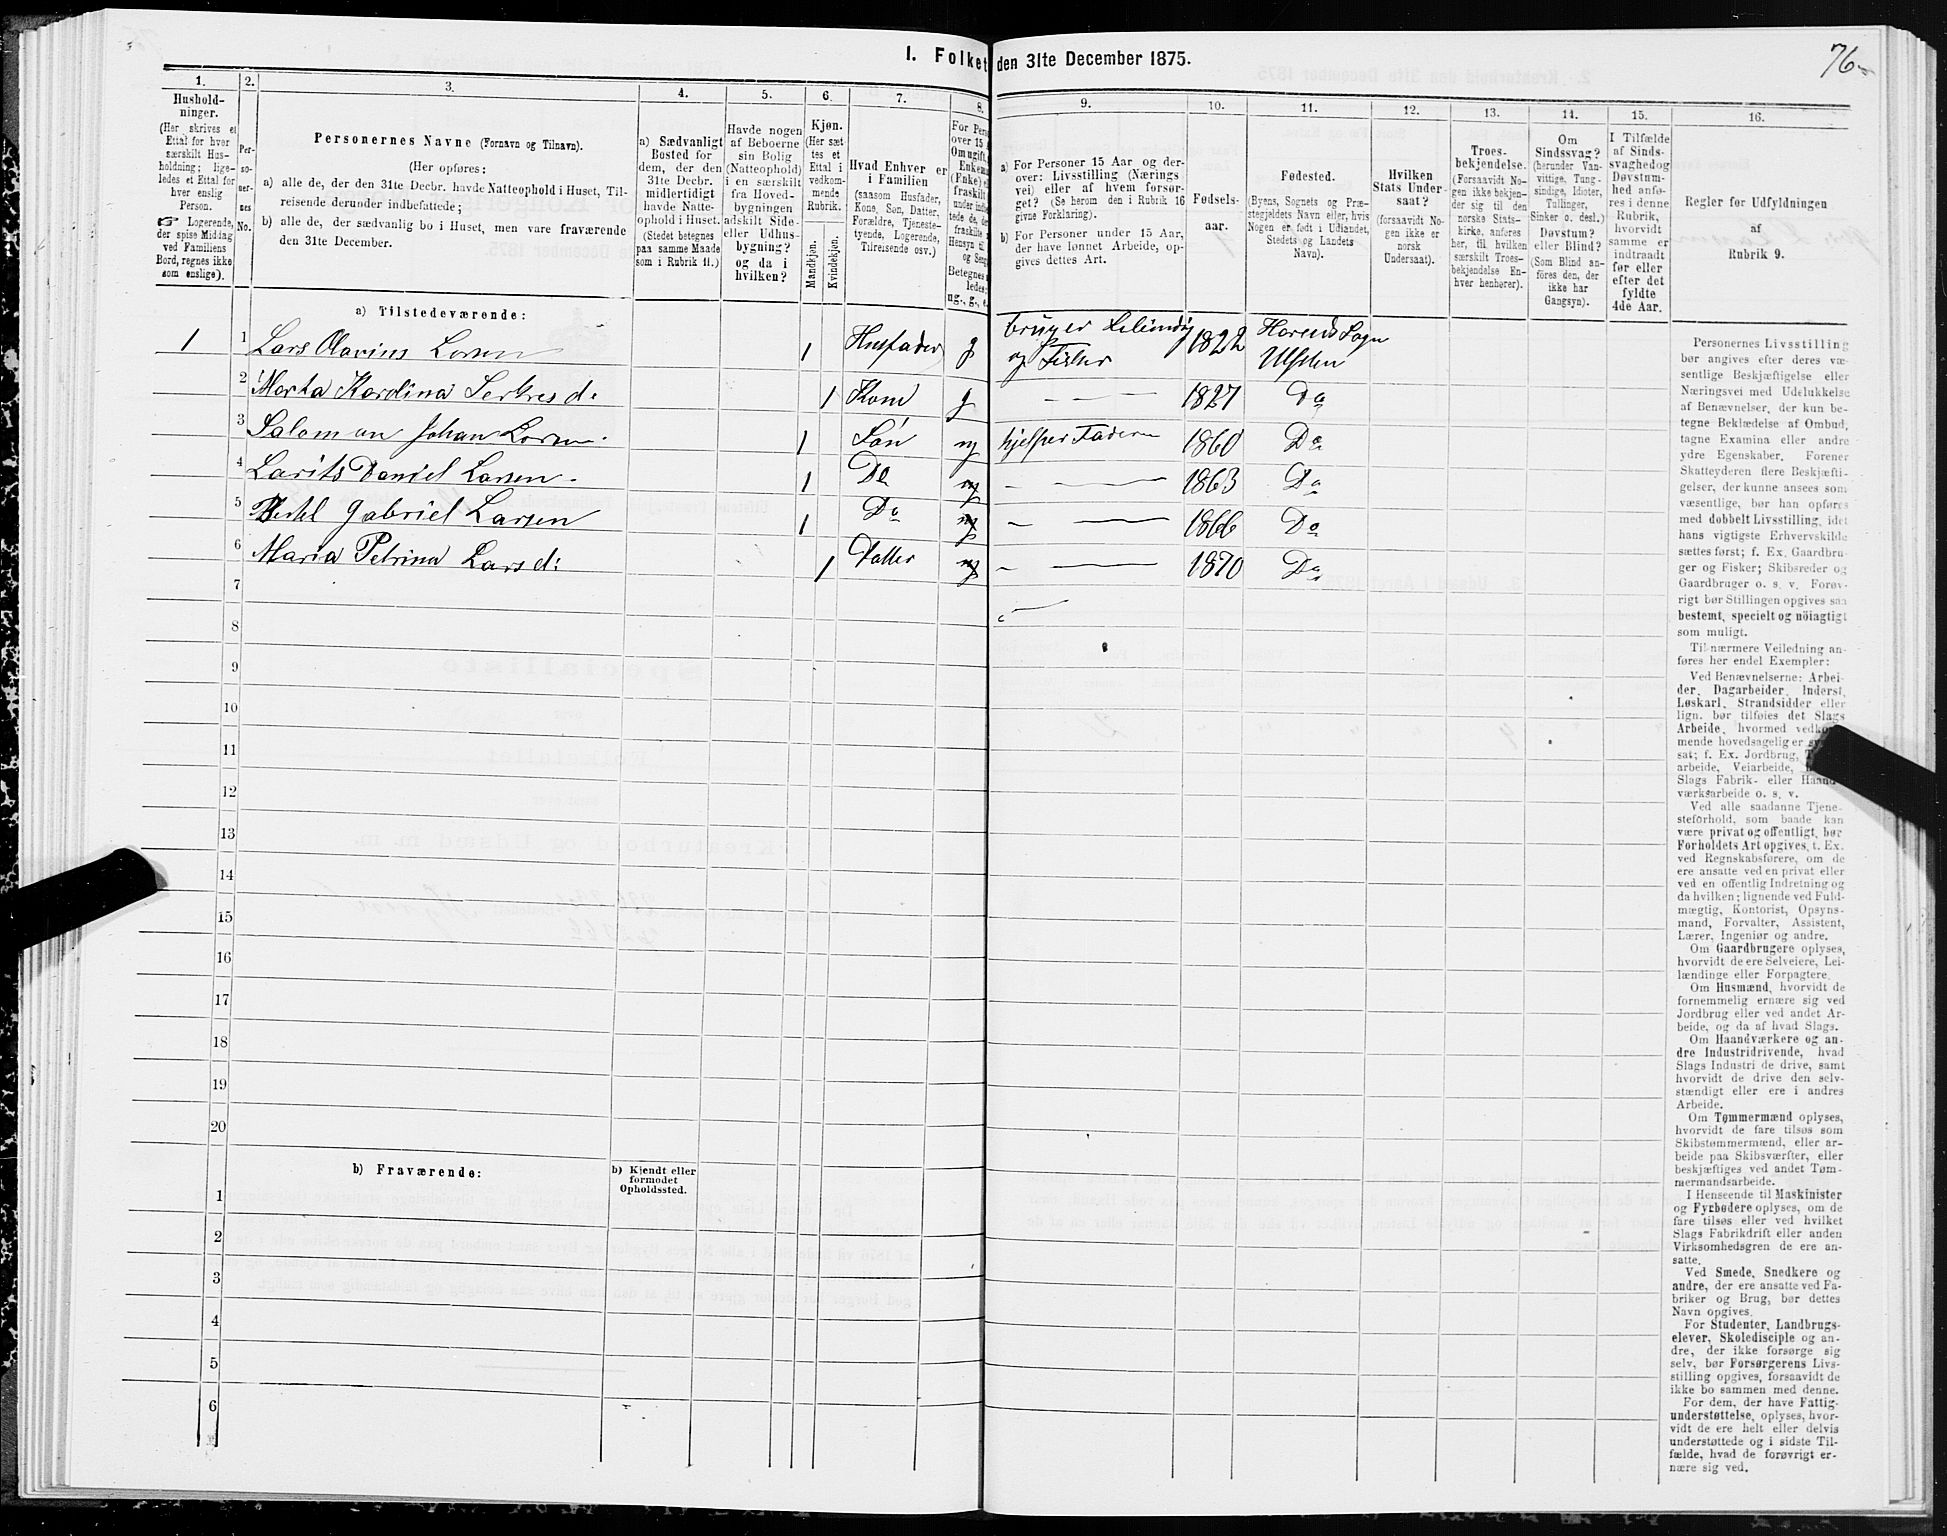 I. Folket den 31te December 1875.
76
1.
2.
3.
4.
5.
6.
7.
8.
9.
10.
11.
12.
13.
14.
15.
16.
Hushold-
ninger.
(Her skrives et
Ettal for hver
særskilt Hus-
holdning; lige-
ledes et Ettal for
hver enslig
Person.
☞ Logerende,
der spise Middag
ved Familiens
Bord, regnes ikke
som enslige).
Per-
so-
ner-
nes
No.
Personernes Navne (Fornavn og Tilnavn).
(Her opføres:
a) alle de, der den 31te Decbr. havde Natteophold i Huset, Til-
reisende derunder indbefattede;
b) alle de, der sædvanlig bo i Huset, men vare fraværende
den 31te December.
a) Sædvanligt
Bosted for
dem, der den
31te Decbr.
midlertidigt
havde Natte-
ophold i Huset.
(Stedet betegnes
paa samme Maade
som i Rubrik 11.)
Havde nogen
af Beboerne
sin Bolig
(Natteophold)
i en særskilt
fra Hoved-
bygningen
adskilt Side-
eller Udhus-
bygning?
og da i
hvilken?
Kjøn.
(Her sæt
tes et
Ettal i
vedkom-
mende
Rubrik.
Mandkjøn.
Kvindekjøn.
Hvad Enhver er
i Familien
(saasom Husfader,
Kone, Søn, Datter,
Forældre, Tjeneste-
tyende, Logerende,
Tilreisende osv.)
For Pers
over 15 A
Om ugift,
Enkema
(Enke) e
fraskilt
a) For Personer 15 Aar og der-
over: Livsstilling (Nærings
vei) eller af hvem forsør-
get? (Se herom den i Rubrik 16
givne Forklaring).
b) For Personer under 15 Aar,
der have lønnet Arbeide, op-
gives dettes Art.
Fødsels-
aar.
Fødested.
(Byens, Sognets og Præ-
stegjeldets Navn eller, hvis
Nogen er født i Udlandet,
Stedets og Landets
Navn).
Hvilken
Stats Under-
saat?
(forsaavidt No-
gen ikke er
norsk
Undersaat).
Troes-
bekjendelse.
(Forsaavidt No-
gen ikke bekjen-
der sig til den
norske Stats-
kirke, anføres
her, til hvilken
særskilt Troes-
bekjendelse En-
hver henhører).
Om
Sindssvag?
(herunder Van-
vittige, Tung-
sindige, Idioter,
Tullinger,
Sinker o. desl.)
Døvstum?
eller Blind?
(Som Blind an-
føres den, der
ikke har
Gangsyn).
I Tilfælde
af Sinds-
svaghed og
Døvstum-
hed anfø-
res i denne
Rubrik,
hvorvidt
samme er
indtraadt
før eller
efter det
fyldte
4de Aar.
Regler for Udfyldningen
af
Rubrik 9.
a) Tilstedeværende:
1 1 Lars Olarius Larsen 1 Husfader g bruger og Fisker 1822 Sogn
2 Marta Kardina d. 1 Kone g 1827 Do
3 Salomon Johan Larsen 1 Søn ug hjelper Faderen 1860 Do
4 Larits Daniel Larsen 1 Do ug 1863 Do
5 Bertel Gabriel Larsen 1 Do ug 1866 Do
6 Maria Petrina Lars d: 1 Datter ug 1870 Do
7
8
9
10
11
12
13
14
15
16
17
18
19
20
b) Fraværende:
b) Kjendt eller
formodet
Opholdssted.
1
2
3
4
5
6
Personernes Livsstilling
bør angives efter deres væ-
sentlige Beskjæftigelse eller
Næringsvei med Udelukkelse
af Benævnelser, der kun be-
tegne Beklædelse af Ombud,
tagne Examina eller andre
ydre Egenskaber. Forener
Skatteyderen flere Beskjæfti-
gelser, der kunne ansees som
væsentlige, bør han opføres
med dobbelt Livsstilling, idet
hans vigtigste Erhvervskilde
sættes først; f. Ex. Gaardbru-
ger og Fisker; Skibsreder og
Gaardbruger o. s. v. Forøv-
rigt bør Stillingen opgives saa
bestemt, specielt og nöiagtigt
som muligt.
Til nærmere Veiledning an-
føres her endel Exempler:
Ved Benævnelserne: Arbei-
der, Dagarbeider, Inderst,
Løskarl, Strandsidder eller
lign. bør tilføies det Slags
Arbeide, hvormed vedkom-
mende hovedsagelig er
sat; f. Ex. Jordbrug,
arbeide, Veiarbeide,
Slags Fabrik- eller Haand-
værksarbeide o. s. v.
Ved alle saadanne Tjene-
steforhold, som baade kan
være privat og offentligt, bør
Forholdets Art opgives, t. Ex.
ved Regnskabsførere, om de
ere ansatte ved en privat eller
ved en offentlig Indretning og
da hvilken; lignende ved Fuld-
mægtig, Kontorist, Opsyns-
mand, Forvalter, Assistent,
Lærer, Ingeniør og andre.
Om Gaardbrugere oplyses,
hvorvidt de ere Selveiere, Lei-
lændinge eller Forpagtere.
Om Husmænd, hvorvidt de
fornemmelig ernære sig ved
Jordbrug eller ved andet Ar-
beide, og da af hvad Slags.
Om Haandværkere og an-
dre Industridrivende, hvad
Slags Industri de drive, samt
hvorvidt de drive den selv-
stændigt eller ere i andres
Arbeide.
Om Tømmermænd oplyses,
hvorvidt de fare tilsøs som
Skibstømmermænd, eller ar-
beide paa Skibsværfter, eller
beskjæftiges ved andet Tøm-
mermandsarbeide.
I Henseende til Maskinister
og Fyrbødere oplyses, om de
fare tilsøs eller ved hvilket
Slags Fabrikdrift eller anden
Virksomhedsgren de ere an-
satte.
Ved Smede, Snedkere og
andre, der ere ansatte ved Fa-
briker og Brug, bør dettes
Navn opgives.
For Studenter, Landbrugs-
elever, Skoledisciple og an-
dre, der ikke forsørge sig
selv, bør Forsørgerens Livs-
stilling opgives, forsaavidt de
ikke bo sammen med denne.
For dem, der have Fattig-
understøttelse, oplyses, hvor-
vidt de ere helt eller delvis
understøttede og i sidste Til-
fælde, hvad de forøvrigt er-
nære sig ved.